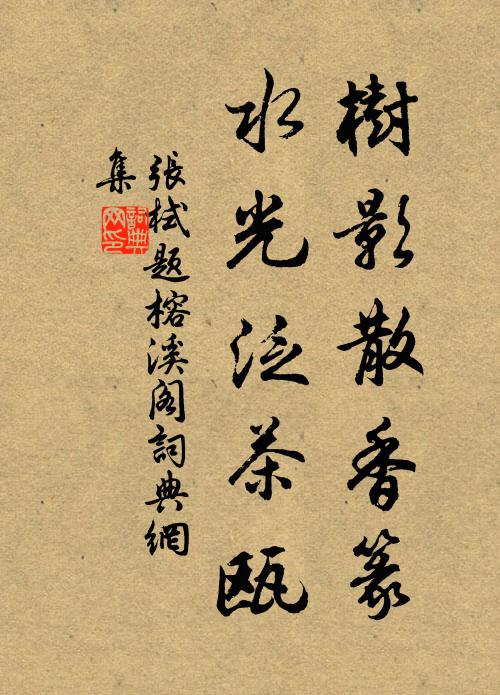 樹影散香篆
水光泛茶甌
張栻題榕溪閣詞典網
集
詞典网印